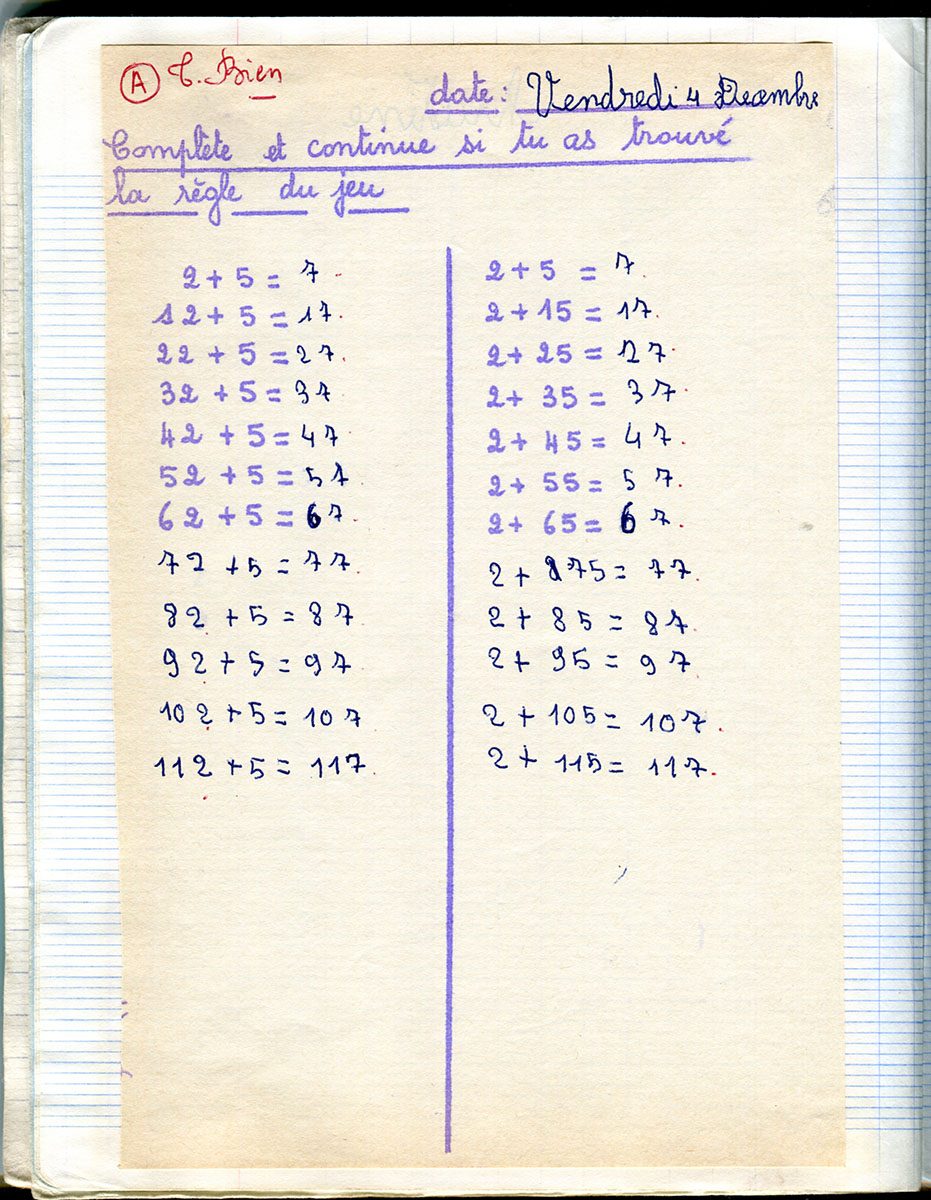 A T. Bien
date: Vendredi 4 Decembre
Complète et continue si tu as trouvé
la règle du jeu
2 + 5 = 7
12 + 5 = 17.
22 + 5 = 27.
32 + 5 = 37
42 + 5 = 47
52 + 5 = 57
62 + 5 = 67.
72 + 5 = 77.
82 + 5 = 87
92 + 5 = 97
102 + 5 = 107
112 + 5 = 117.
2 + 5 = 7.
2 + 15 = 17.
2 + 25 = 27.
2 + 35 = 37.
2 + 45 = 47.
2 + 55 = 57.
2 + 65 = 67.
2 + 75 = 77.
2 + 85 = 87.
2 + 95 = 97
2 + 105 = 107.
2 + 115 = 117.